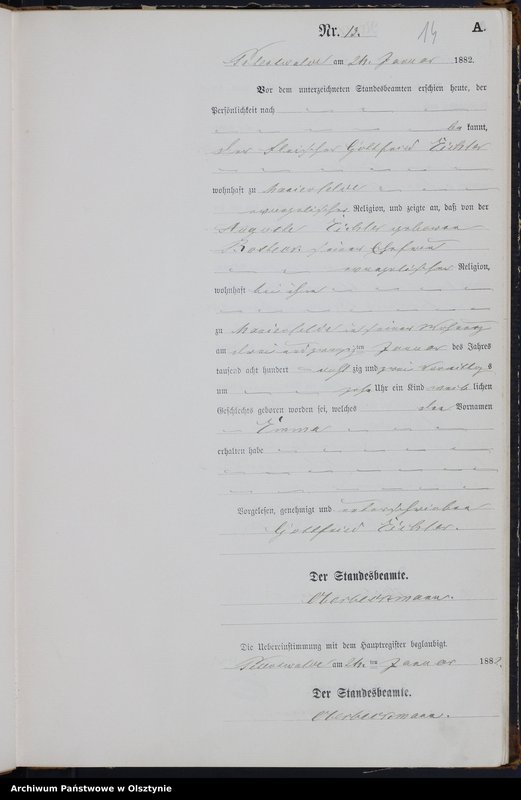 Nr. 13. 14 A.
am 24. Januar 1882.
Vor dem unterzeichneten Standesbeamten erschien heute, der
Persönlichkeit nach
be kannt,
der Fleischer Gottfried Eichler
wohnhaft zu Marienfelde
evangelischer Religion, und zeigte an, daß von der
Auguste Eichler geborenen
seiner Ehefrau
evangelischer Religion,
wohnhaft bei ihm
zu Marienfelde in seiner Wohnung
am drei und zwanzig ten Januar des Jahres
tausend acht hundert acht zig und zwei Vormittags
um Uhr ein Kind weib lichen
Geschlechts geboren worden sei, welches den Vornamen
Emma
erhalten habe
Vorgelesen, genehmigt und unterschrieben
Gottfried Eichler.
Der Standesbeamte.
Oberbecksmann.
Die Uebereinstimmung mit dem Hauptregister beglaubigt.
am 24. ten Januar 1882.
Der Standesbeamte.
Oberbecksmann.
Archiwum Państwowe w Olsztynie